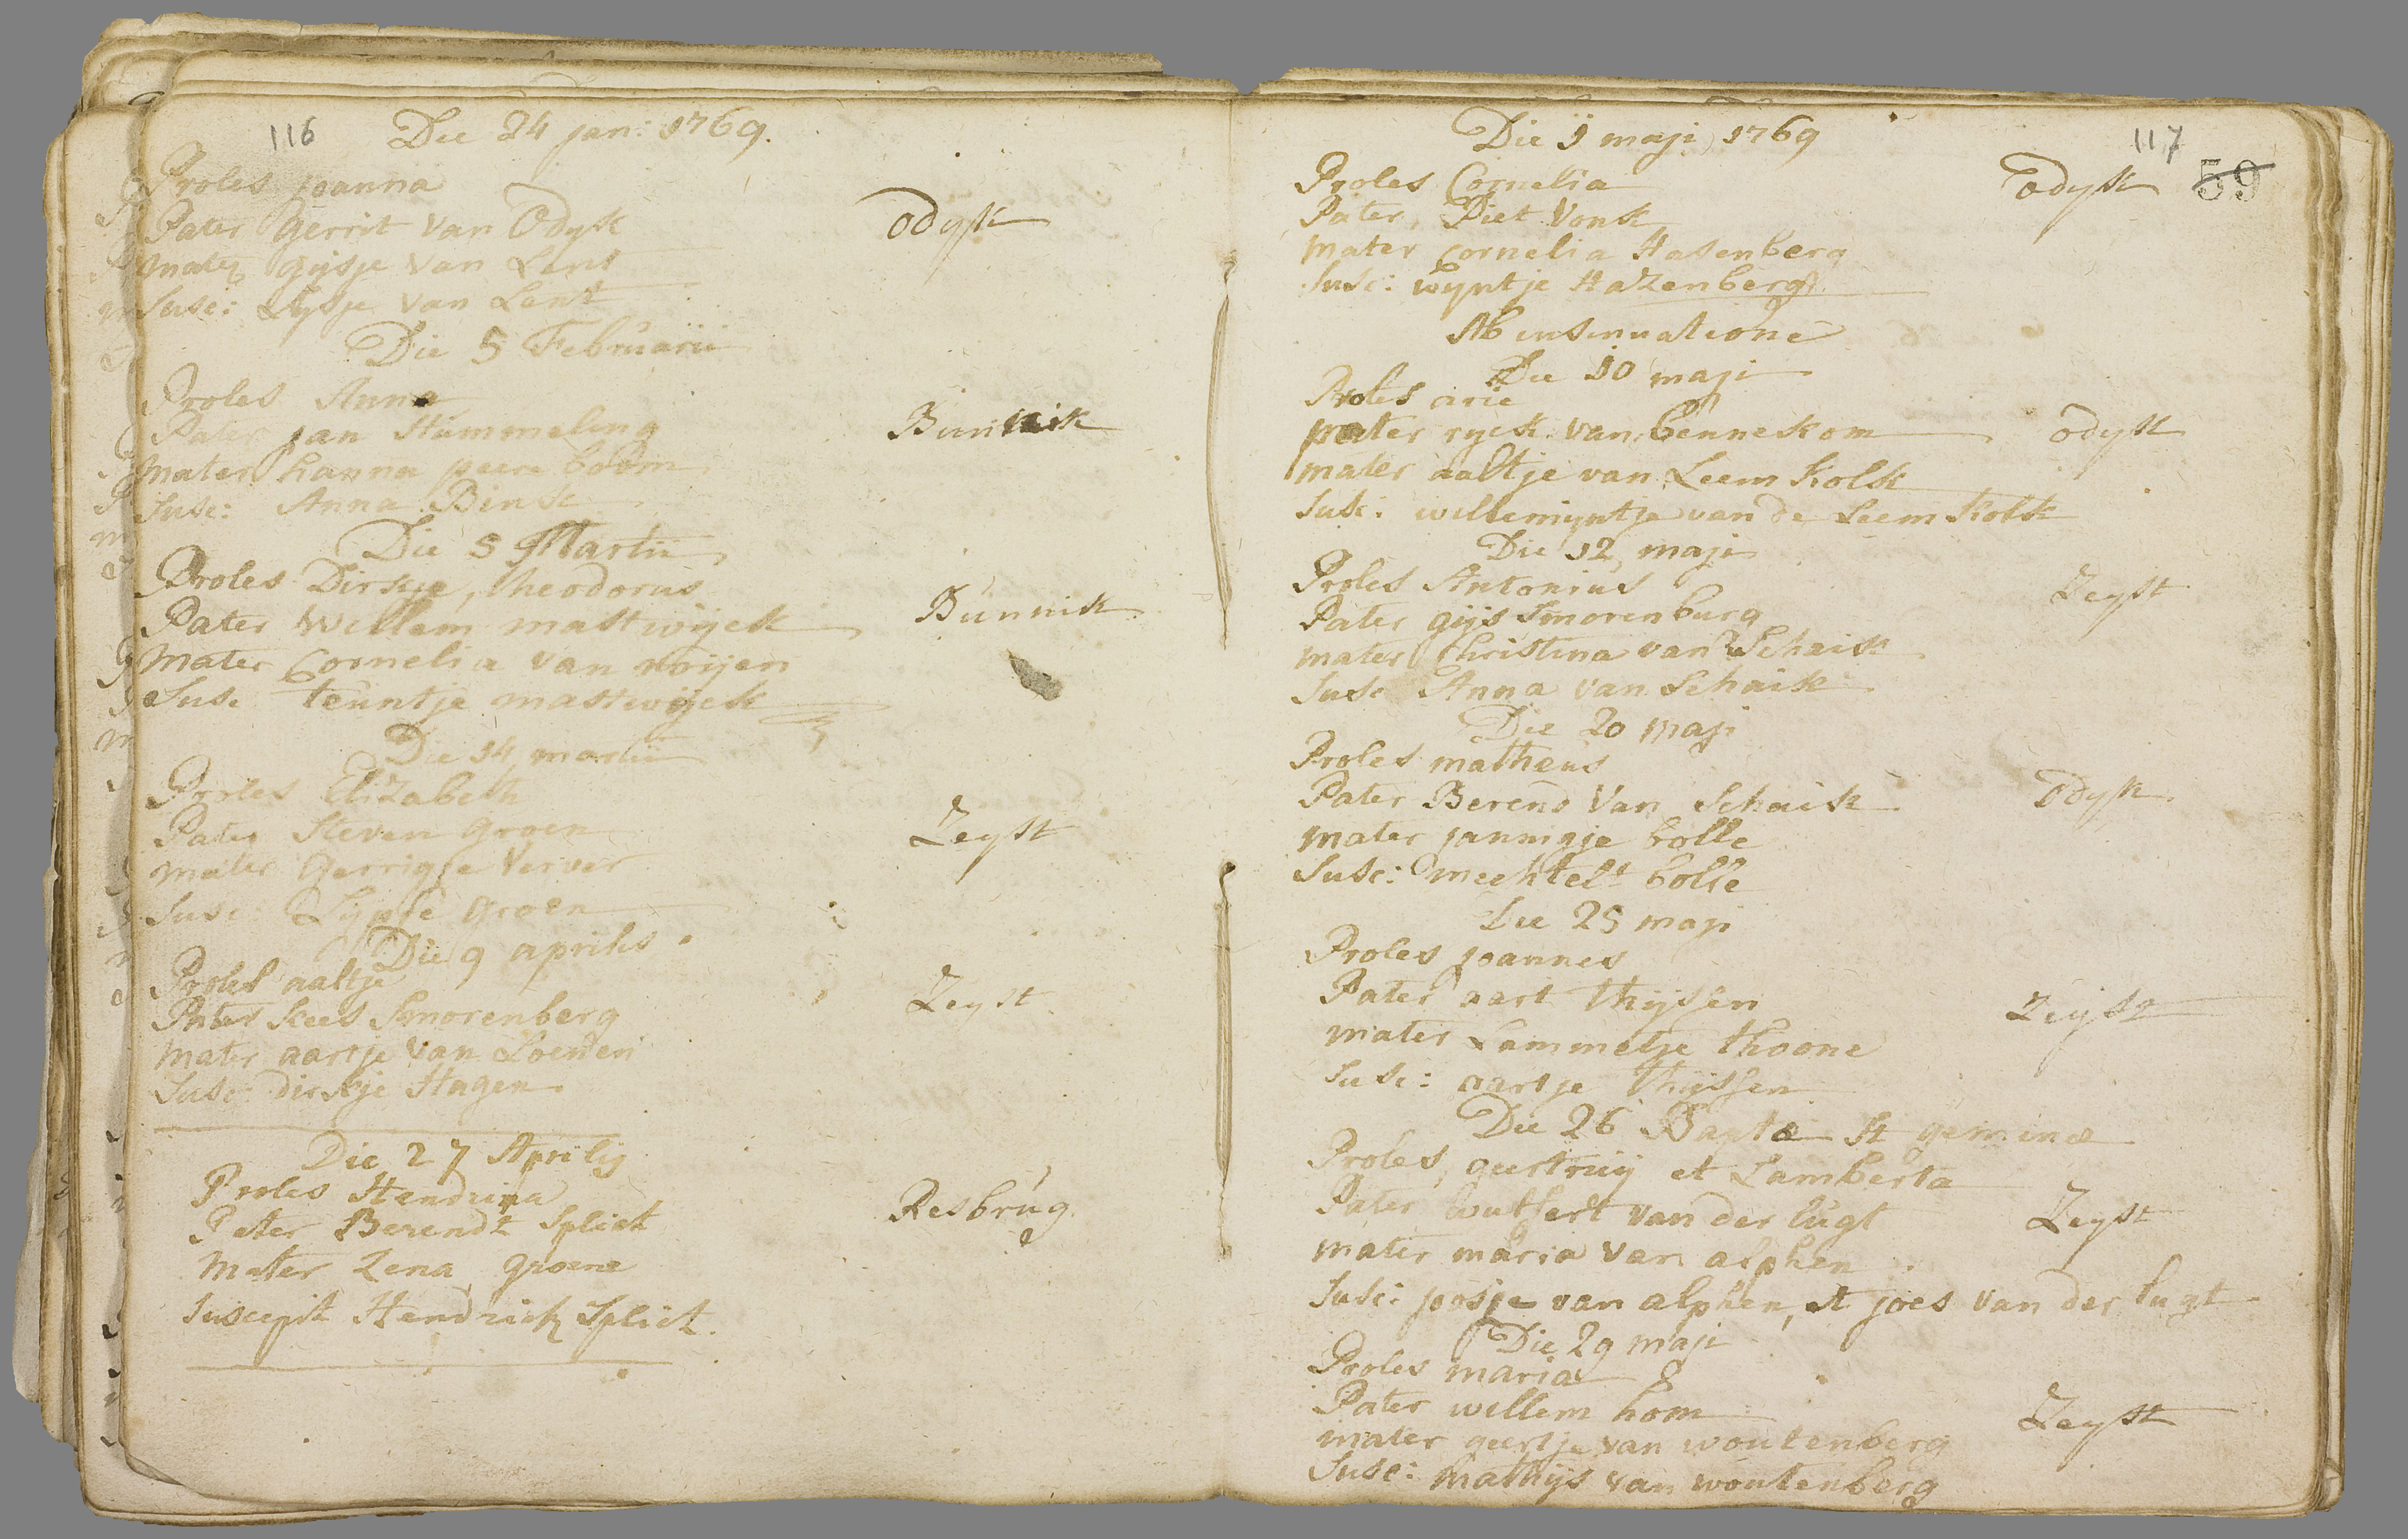 116
Die 24 jan: 1769.
Proles joanna
Pater Gerrit van Odyk
Odyk
mater gijsje van Lent
Susc: Lysje van Lent
Die 5 Februarii
Proles Anna
Pater jan Hummeling
Bunnik
Mater hanna peere boom
Susc: Anna Bink
Die 5 Martii
Proles Dirkje, theodorus
Pater Willem mastwijck
Bunnik
Mater Cornelia van roijen
Susc teuntje mastwijck
Die 14 martii
Proles Elizabeth
Pater Steven groen
Zeyst
mater Gerrigje Verver
Susc: Lijsje groen
Die 9 aprilis
Proles aaltje
Pater Kees Smorenberg
Zeyst
Mater aartje van Loenen
Susc: dirkje Hagen
Die 27 Aprilij
Proles Hendrina
Pater Berendt Spliet
Resbrug
Mater Lena groene
Suscepit Hendrick Spliet.
117
59
Die 1 maji 1769
Proles Cornelia
Odyk
Pater, Piet Vonk
Mater cornelia Hasenberg
Susc: wyntje Hazenberg
Ab insinuatione
Die 10 maji
Proles arie
pater ryck van bennekom
odyk
mater aaltje van Leem Kolk
Susc: willemyntje van de Leem Kolk
Die 12 maji
Proles Antonius
Zeyst
Pater gijs Smorenburg
mater Christina van Schaik
Susc Anna van Schaik
Die 20 maji
Proles matheus
Pater Berend van Schaik
Odyk
Mater jannigje bolle
Susc: mechtelt bolle
Die 25 maji
Proles joannes
Pater aart thijssen
Zeyst
mater Lammetje thoone
Susc: aartje thijssen
Die 26 Baptae St geminae
Proles, geertruij et Lamberta
Pater wulfert van der lugt
Zeyst
mater maria van alphen
Susc: joosje van alphen, et joes van der lugt
Die 29 maji
Proles maria
Pater willem hom
Zeyst
mater geertje van woutenberg
Susc: Mathijs van woutenberg